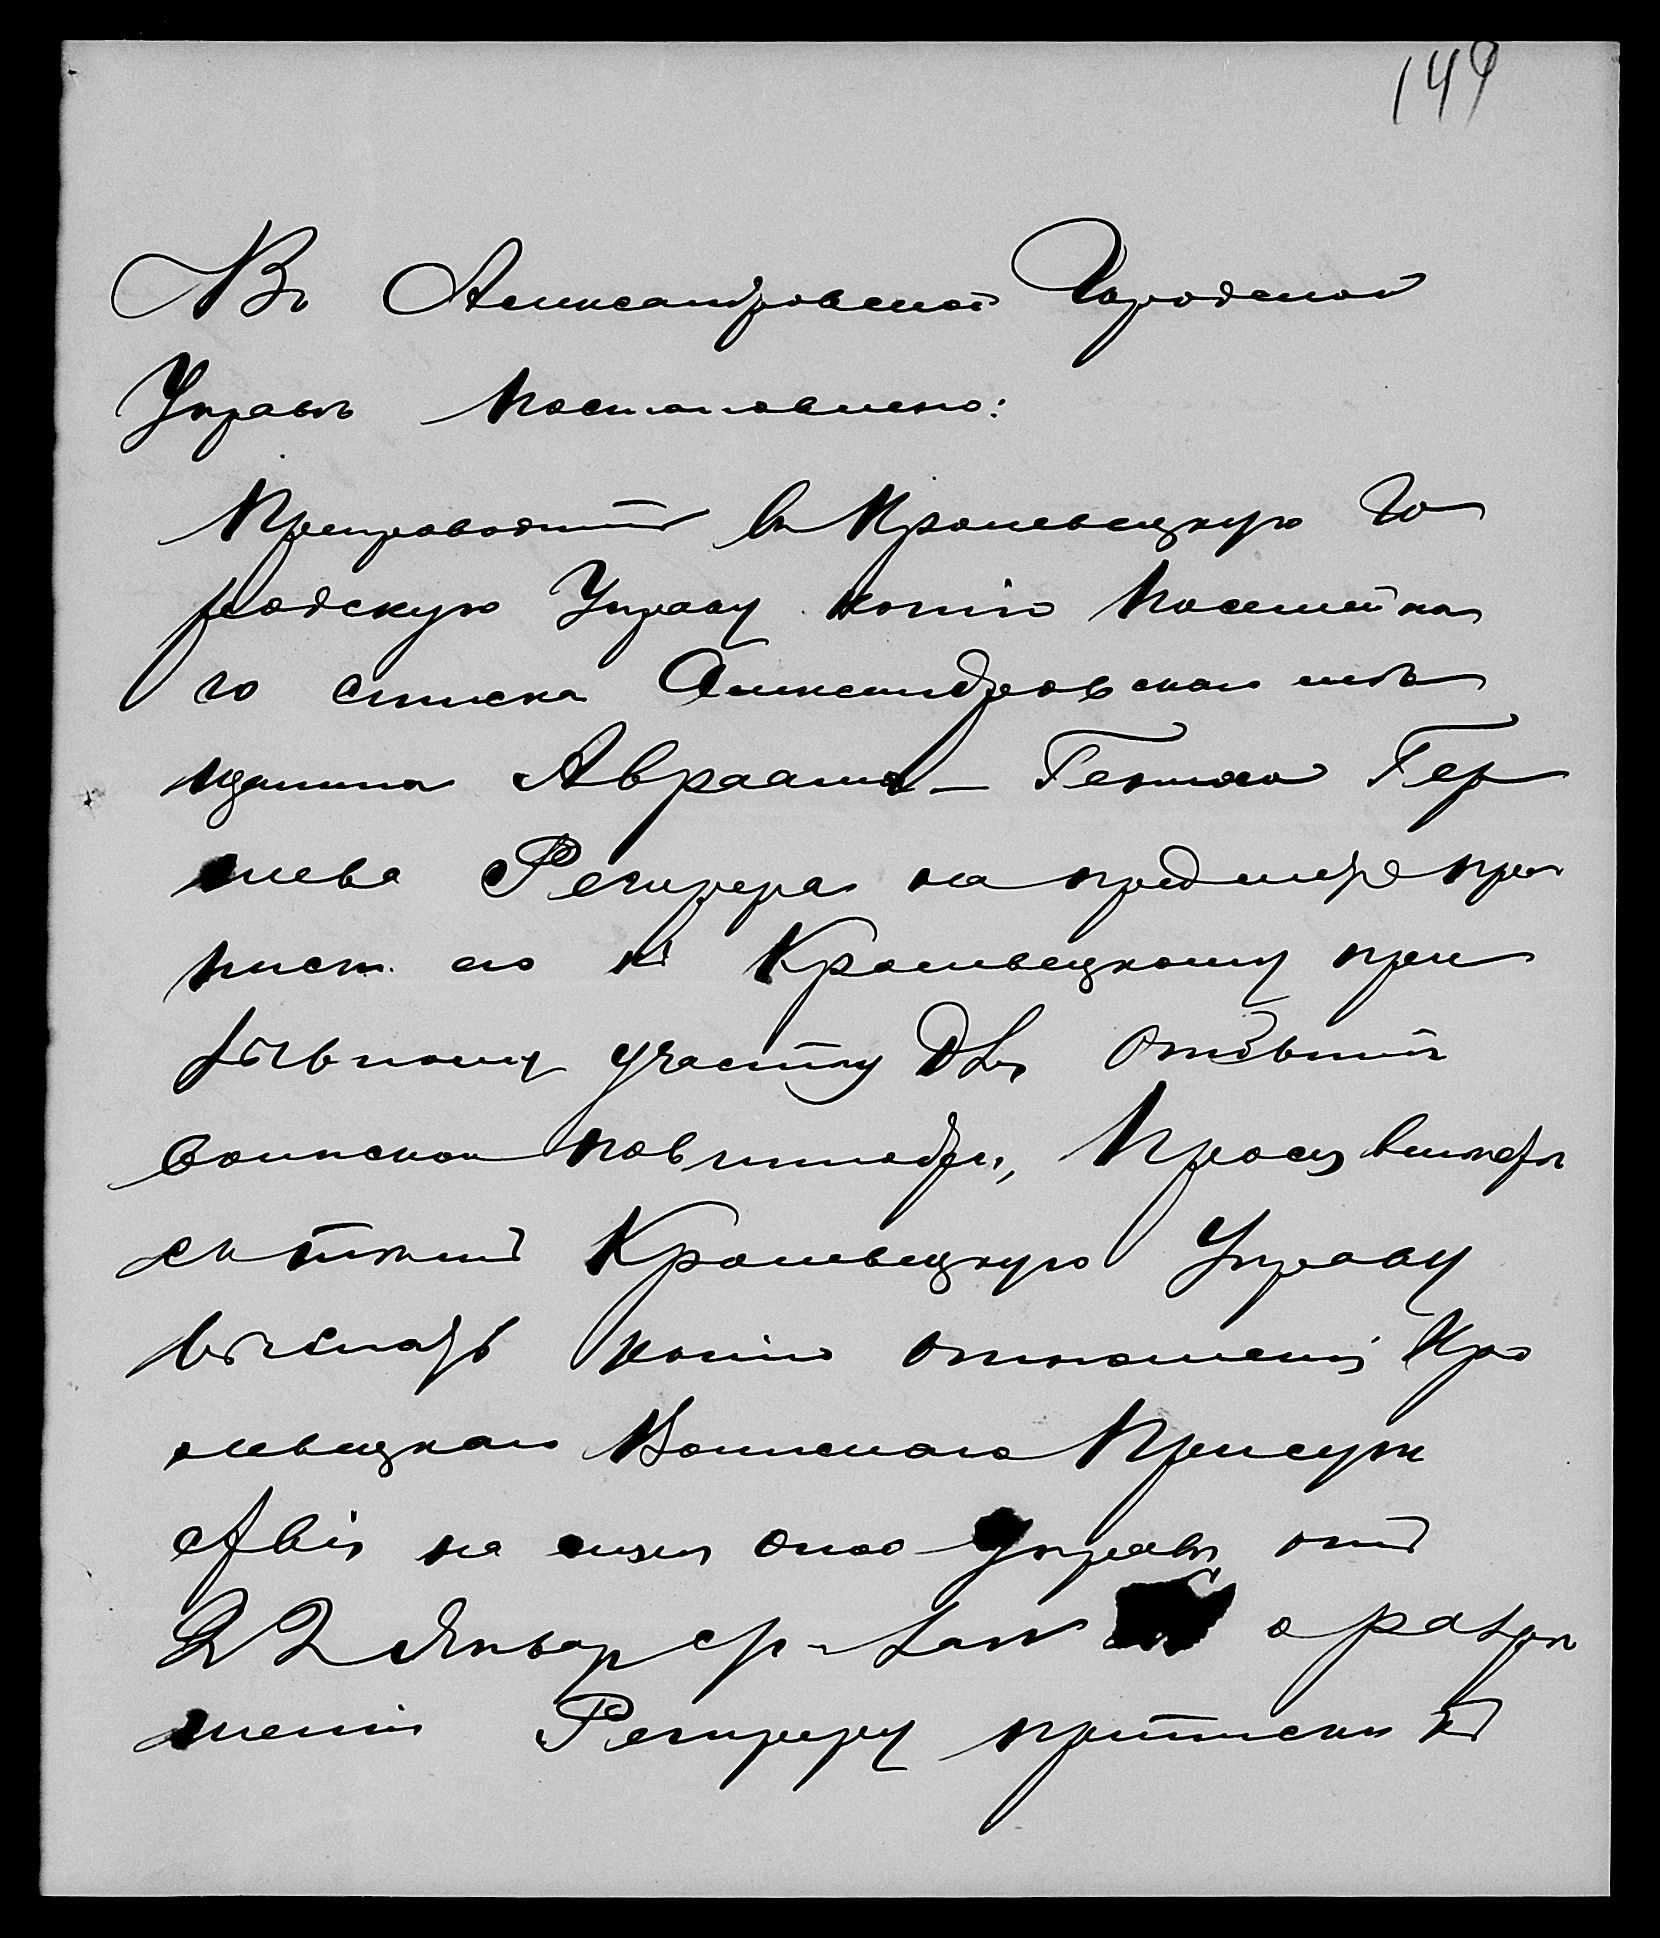 149
Въ Александровской Городской
Управѣ Постановлено:
Препроводить въ Кролевецкую Го
родскую Управу копію Посемейна
го списка Александровскаго мѣ
щанина Авраама-Гениха Гер
шева Регирера на предметъ при
писк. его къ Кролевецкому при
зывному участку для отбытія
воинской повинности, Прося вмѣстѣ
съ тѣмъ Кролевецкую Управу
выслать копію отношенія Кро
левецкаго Воинскаго Присут
ствія на имя оной Управы отъ
22 Января с/г за № о разрѣ
шеніи Региреру приписки къ